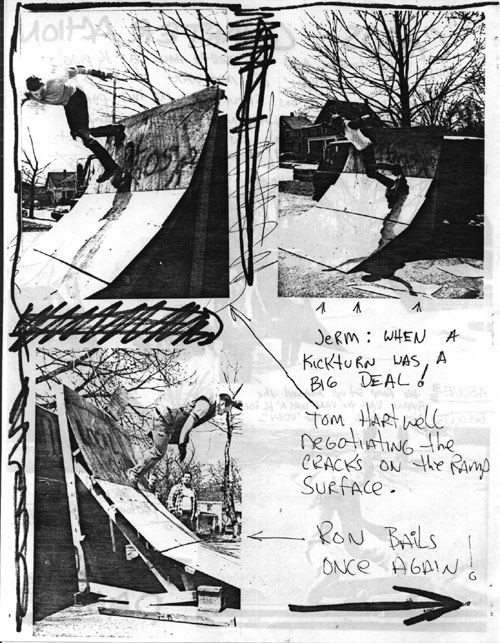 Jerm: WHEN A
KICKTURN WAS A
BIG DEAL!
TOM HARTWELL
NEGOTIATING the
CRACKS ON the RAMP
SURFACE.
RON BAilS
ONCE AGAIN!